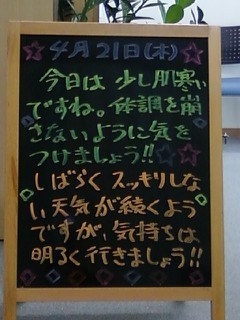 4月21日(木)
今日は少し肌寒い
ですね。体調を崩
さないように気を
つけましょう!!
しばらくスッキリしな
い天気が続くよう
ですが、気持ちは
明るく行きましょう!!